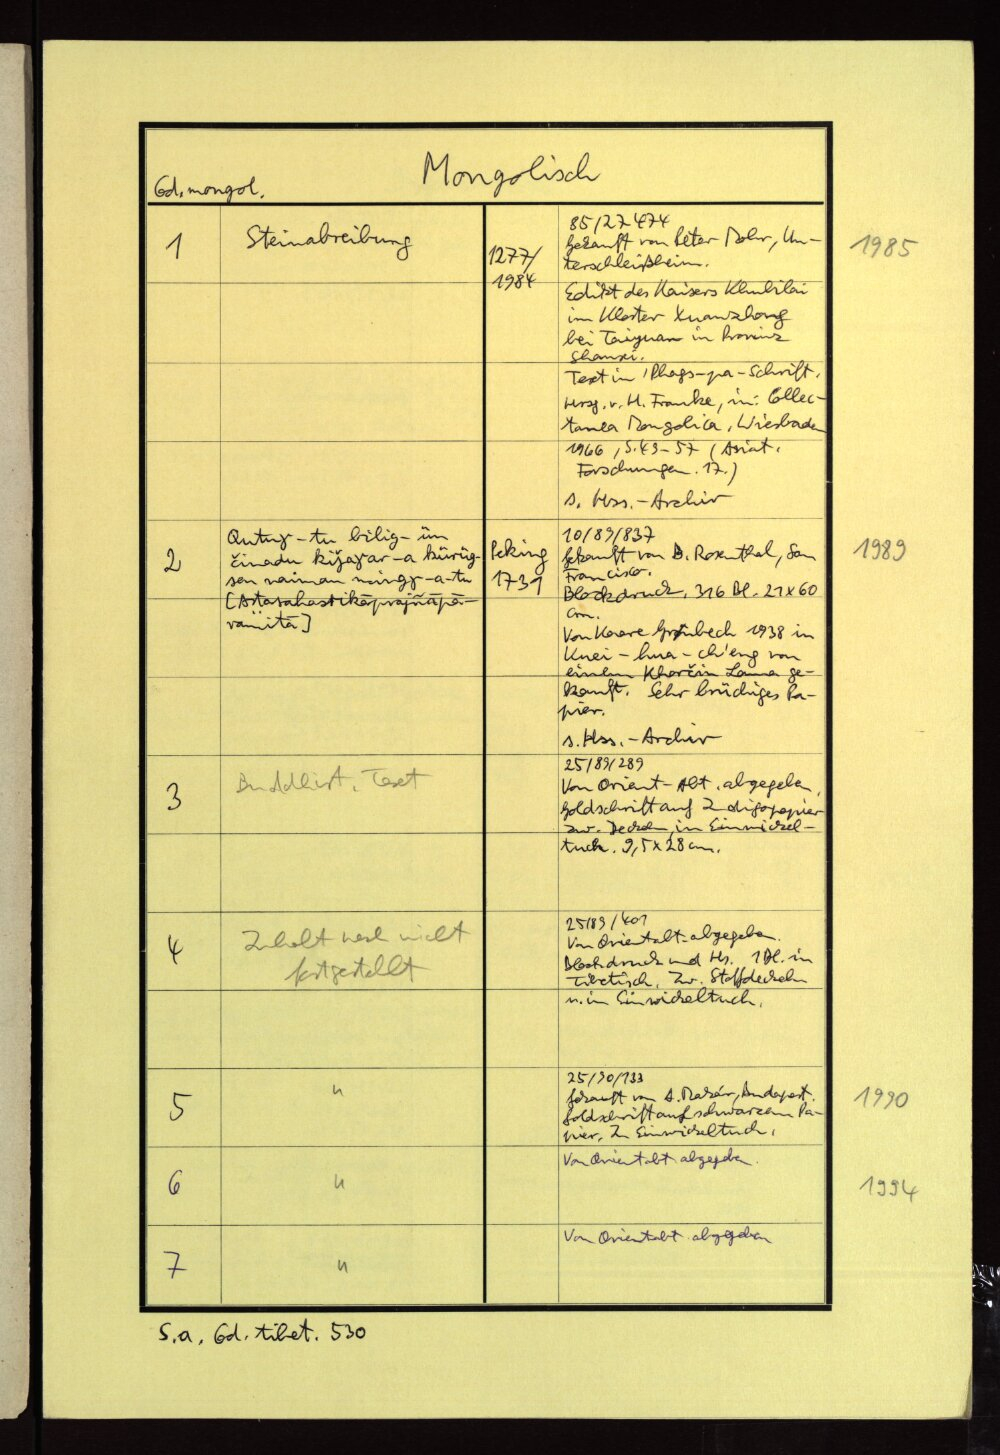 Mongolisch
Cod. mongol.
1
Steinabreibung
1277/
1984
85/27474
Gekauft von Peter Mohr, Un-
terschleißheim.
1985
Edikt des Kaisers Khubilai
im Kloster Xuanzhong
bei Taiyuan in Provinz
Shanxi.
Text in 'Phags-pa-Schrift.
Hrsg. v. H. Franke, in: Collec-
tanea Mongolica, Wiesbaden
1966, S. 49-57 (Asiat.
Forschungen. 17.)
s. Hss.-Archiv
2
Qutuγ-tu bilig-ün
činadu kijaγar-a kürüg-
sen naiman mingγ-a-tu
[Astasahastikāprajñāpā-
ramitā]
Peking
1731
10/89/837
Gekauft von B. Rosenthal, San
Francisco.
Blockdruck, 316 Bl. 21x60
cm.
Von Kaare Grønbech 1938 in
Kuei-hua-ch'eng von
einem Kharčin Lama ge-
kauft. Sehr brüchiges Pa-
pier.
s. Hss.-Archiv
1989
3
Buddhist. Text
25/89/289
Von Orient-Abt. abgegeben.
Goldschrift auf Indigopapier
zw. Deckeln, in Einwickel-
tuch. 9,5x28 cm.
4
Inhalt noch nicht
festgestellt
25/89/401
Von Orientabt. abgegeben.
Blockdruck und Hs. 1 Bl. in
Tibetisch. Zw. Stoffdeckeln
u. in Einwickeltuch.
5
"
25/90/133
Gekauft von Budapest.
Goldschrift auf schwarzem Pa-
pier. In Einwickeltuch.
1990
6
"
Von Orientabt abgegeben.
1994
7
"
Von Orientabt. abgegeben
S.a. Cod. tibet. 530